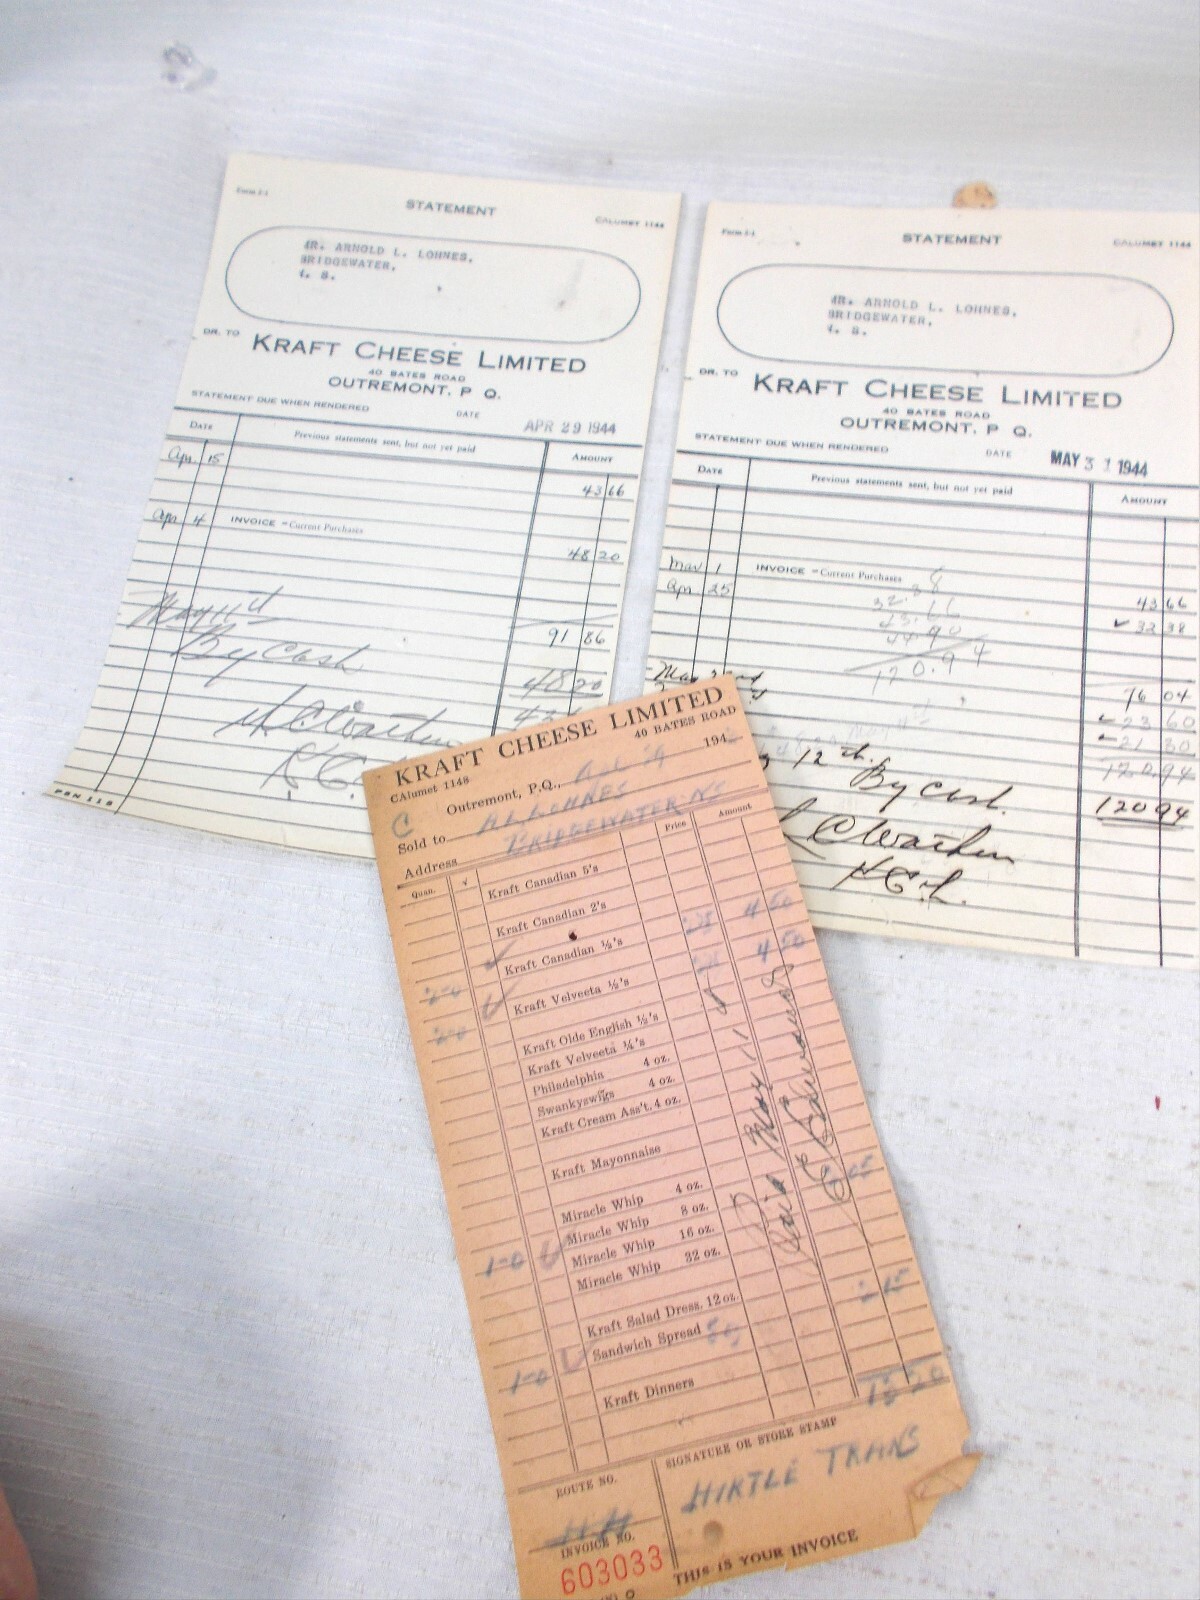 Form J-1
STATEMENT
CALUMET 1144
MR. ARNOLD L. LOHNES,
BRIDGEWATER,
N. S.
DR. TO
KRAFT CHEESE LIMITED
40 BATES ROAD
OUTREMONT, P Q.
STATEMENT DUE WHEN RENDERED
DATE
APR 29 1944
DATE
Previous statements sent, but not yet paid
AMOUNT
Apr 15
43 66
Apr 4 INVOICE - Current Purchases
48 20
91 86
May 11
By Cash
48 20
Form J-1
STATEMENT
CALUMET 1144
MR. ARNOLD L. LOHNES,
BRIDGEWATER,
N. S.
DR. TO
KRAFT CHEESE LIMITED
40 BATES ROAD
OUTREMONT, P Q.
STATEMENT DUE WHEN RENDERED
DATE
MAY 31 1944
DATE
Previous statements sent, but not yet paid
AMOUNT
May 1 INVOICE - Current Purchases
43 66
Apr 25
32 38
76 04
23 60
21 30
120.94
120 94
12th.
By Cash.
120 94
H.C.L.
KRAFT CHEESE LIMITED
CAlumet 1148
40 BATES ROAD
Outremont, P.Q.,
194
C
Sold to A L LOHNES
Address BRIDGEWATER NS
Quan. Price Amount
Kraft Canadian 5's
Kraft Canadian 2's
Kraft Canadian ½'s 4 50
Kraft Velveeta ½'s 4 50
Kraft Olde English ½'s
Kraft Velveeta ¼'s
Philadelphia 4 oz.
Swankyswigs 4 oz.
Kraft Cream Ass't. 4 oz.
Kraft Mayonnaise
Miracle Whip 4 oz.
Miracle Whip 8 oz.
1-0 Miracle Whip 16 oz.
Miracle Whip 32 oz.
Kraft Salad Dress. 12 oz.
1-0 Sandwich Spread
Kraft Dinners
Paid May 11
ROUTE NO.
SIGNATURE OR STORE STAMP
HIRTLE TRANS
INVOICE NO.
603033
THIS IS YOUR INVOICE